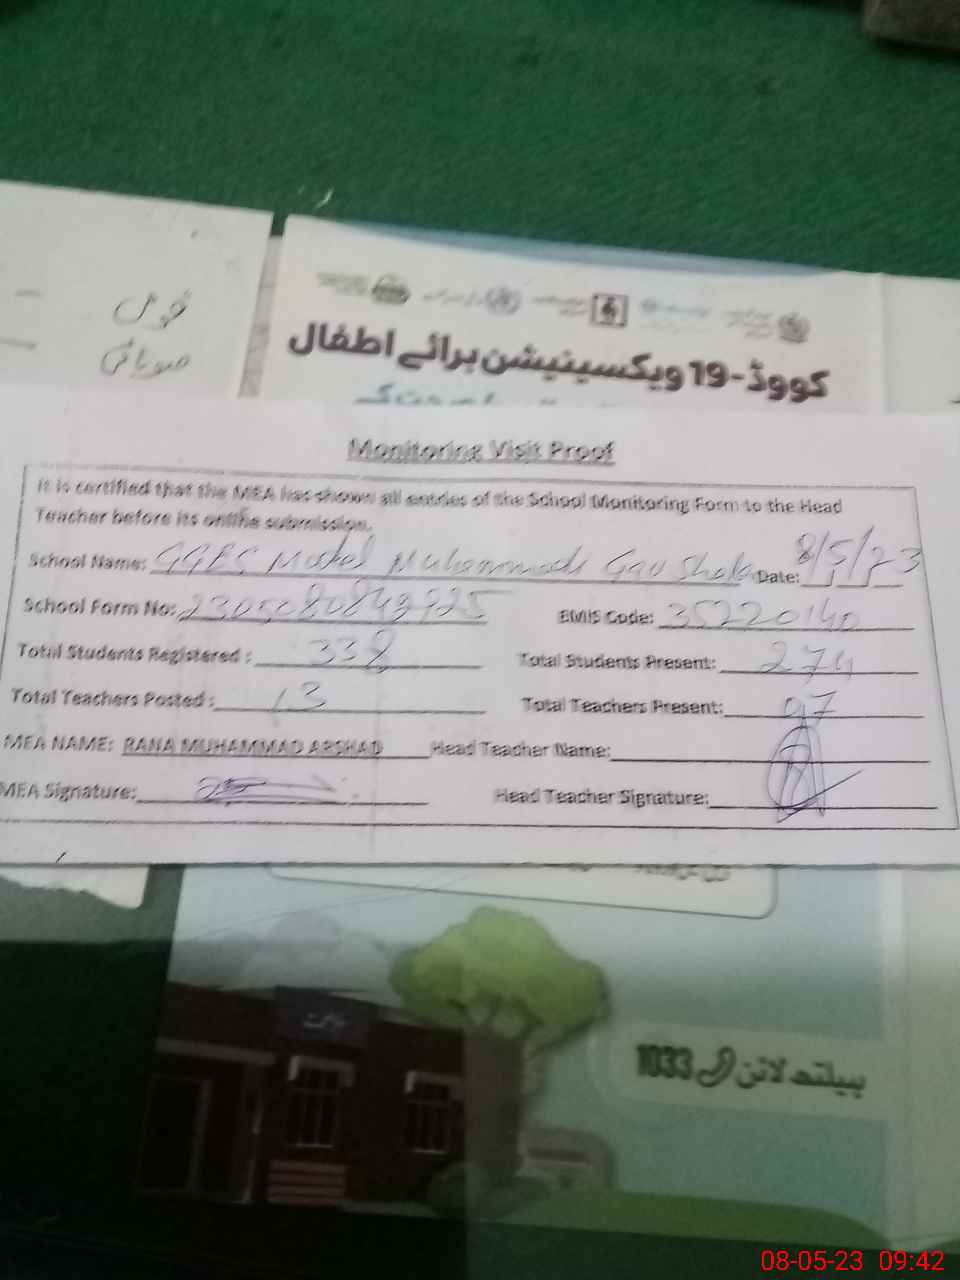 قومی
صوبائی
کووڈ-19 ویکسینیشن برائے اطفال
Monitoring Visit Proof
It is certified that the MEA has shown all entries of the School Monitoring Form to the Head
Teacher before its online submission.
School Name: GGES Model Muhammadi Gau Shala Date: 8/5/23
School Form No: EMIS Code: 35220140
Total Students Registered : 338 Total Students Present: 274
Total Teachers Posted : 13 Total Teachers Present: 07
MEA NAME: RANA MUHAMMAD ARSHAD Head Teacher Name:
MEA Signature: Head Teacher Signature:
ہیلتھ لائن 1033
08-05-23 09:42